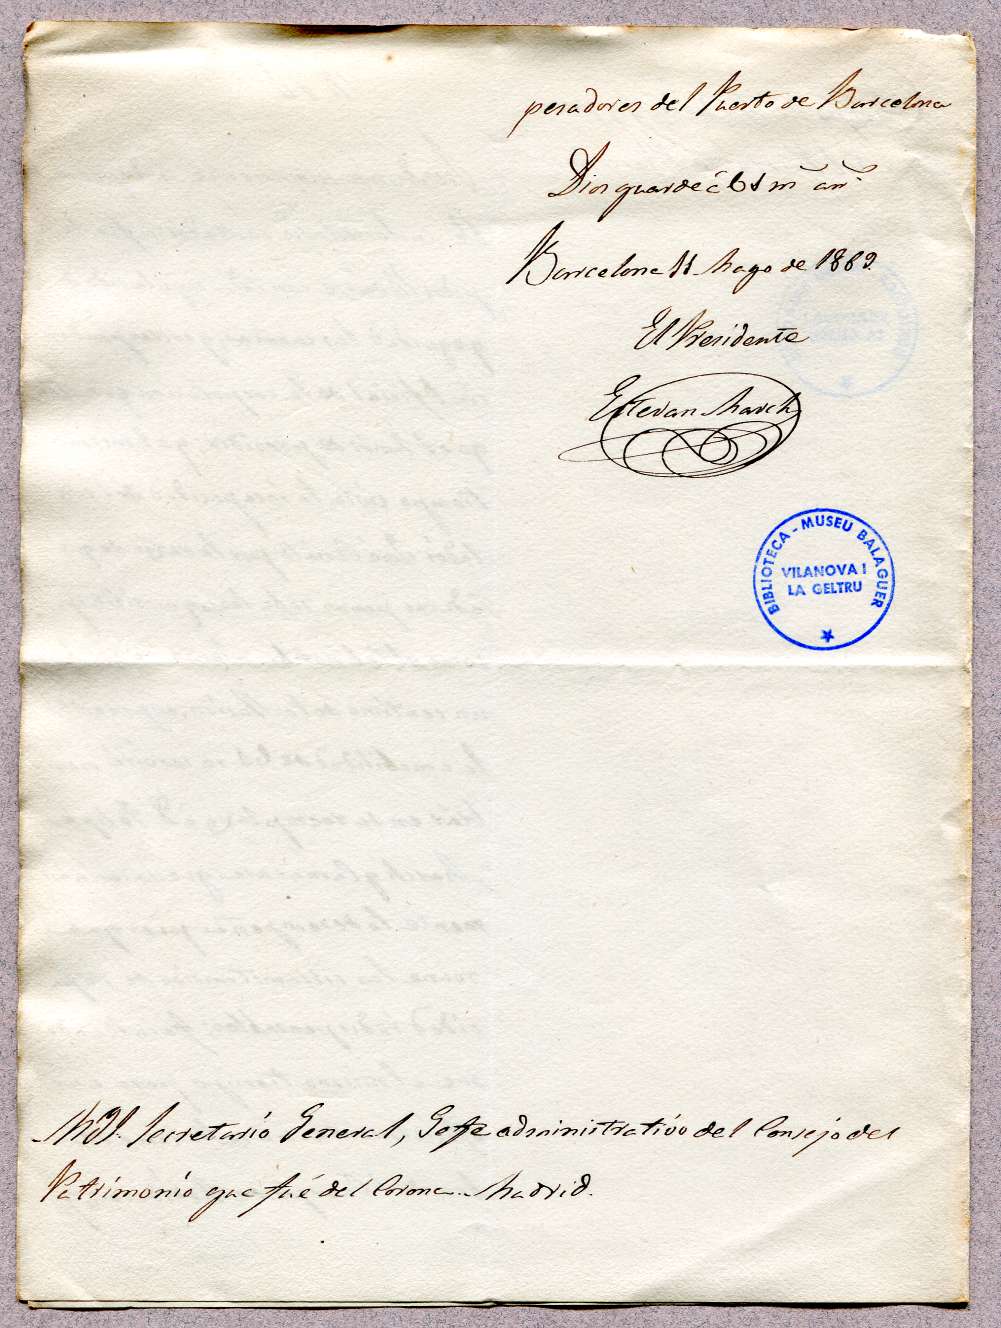 pesadores del Puerto de Barcelona
Dios guarde á V.S. m.ˢ an.ˢ
Barcelona 11 Mayo de 1869.
El Presidente
Estevan March
BIBLIOTECA - MUSEU BALAGUER
VILANOVA I
LA GELTRU
M. Y. S. Secretario General, Gefe administrativo del Consejo del
Patrimonio que fué del Corona. Madrid.